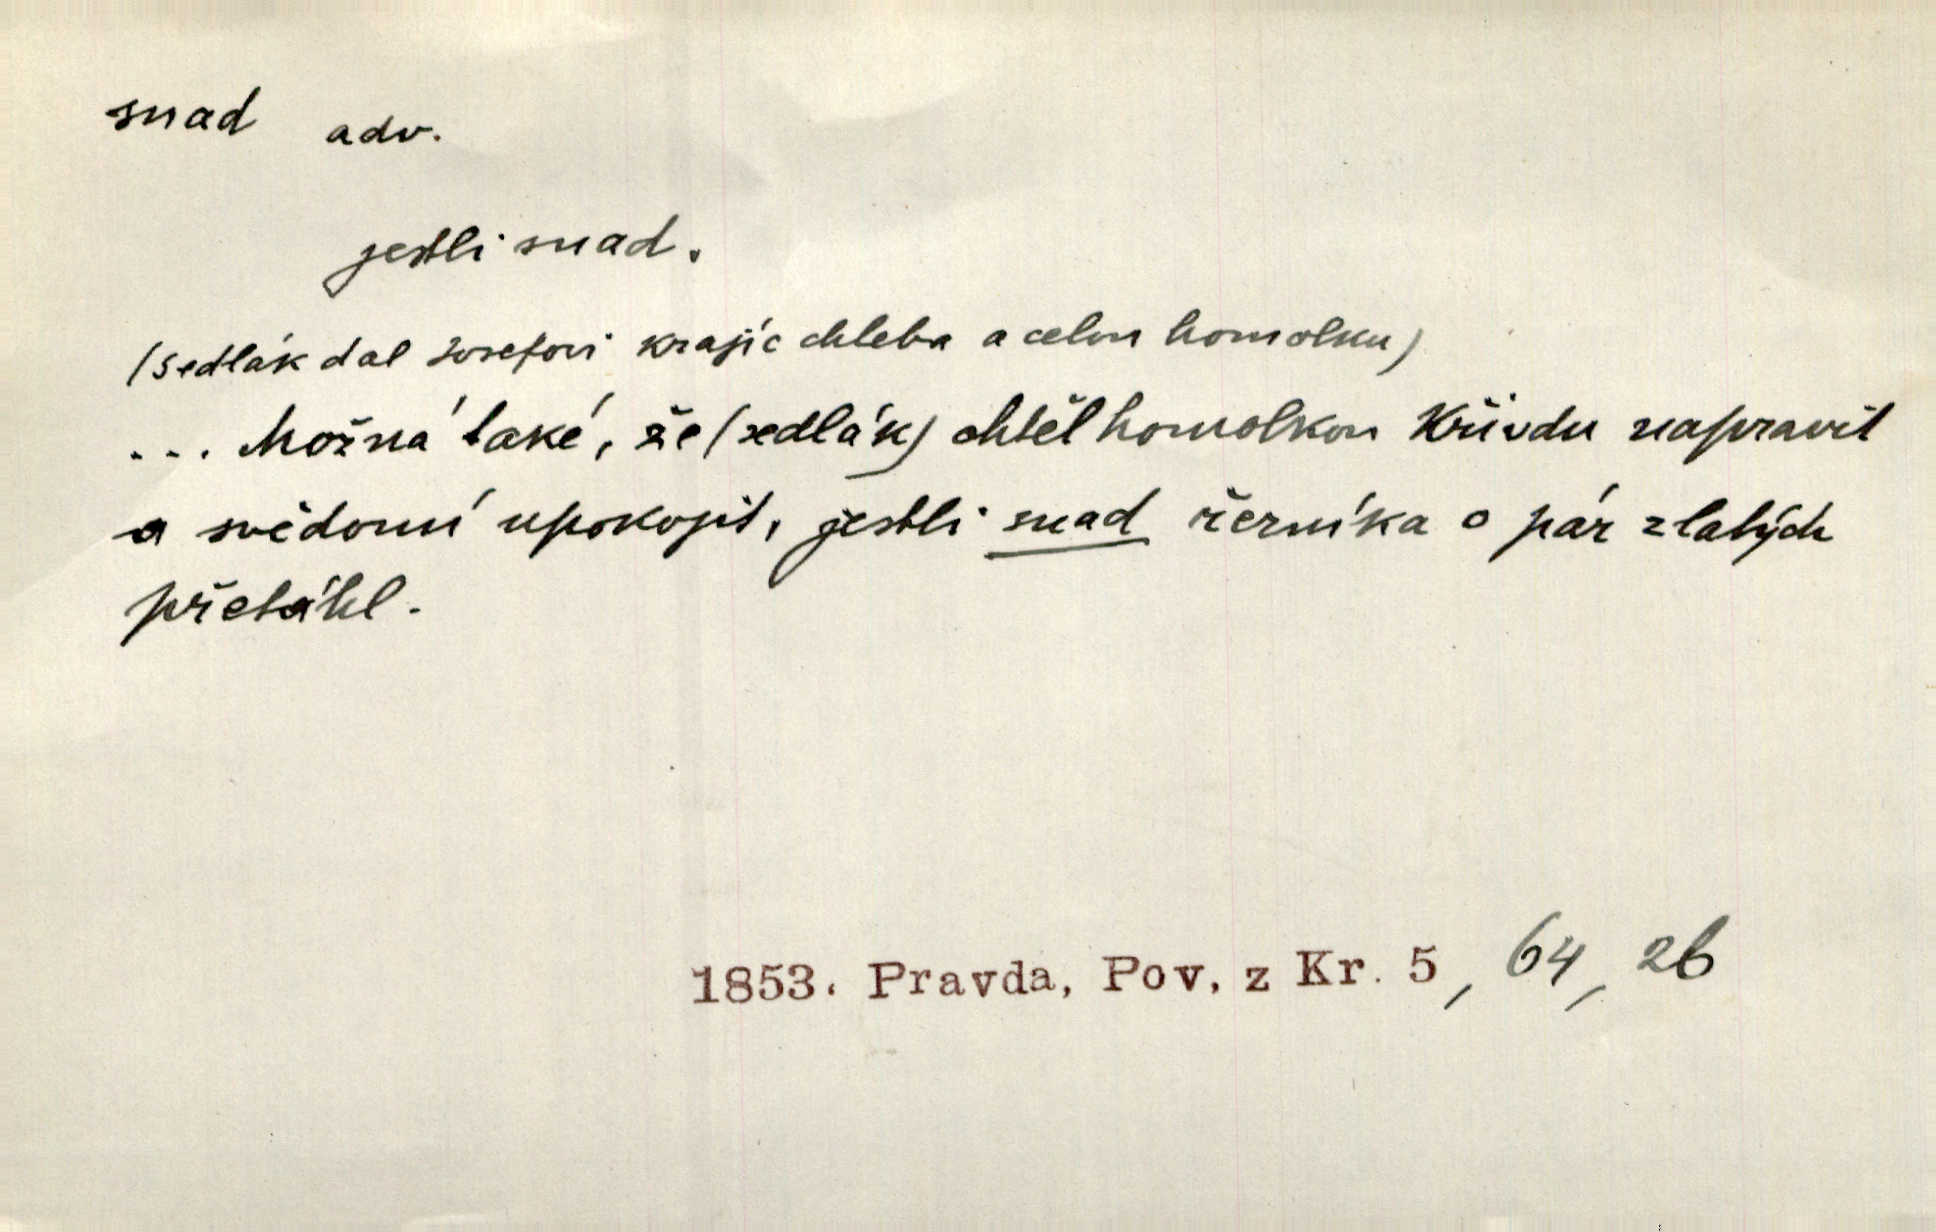 snad adv.
jestli snad.
(sedlák dal Josefovi krajíc chleba a celou homolku)
... Možná také, že (sedlák) chtěl homolkou křivdu napravit
a svědomí upokojit, jestli snad řezníka o pár zlatých
přetáhl.
1853. Pravda, Pov. z Kr. 5, 64, 26